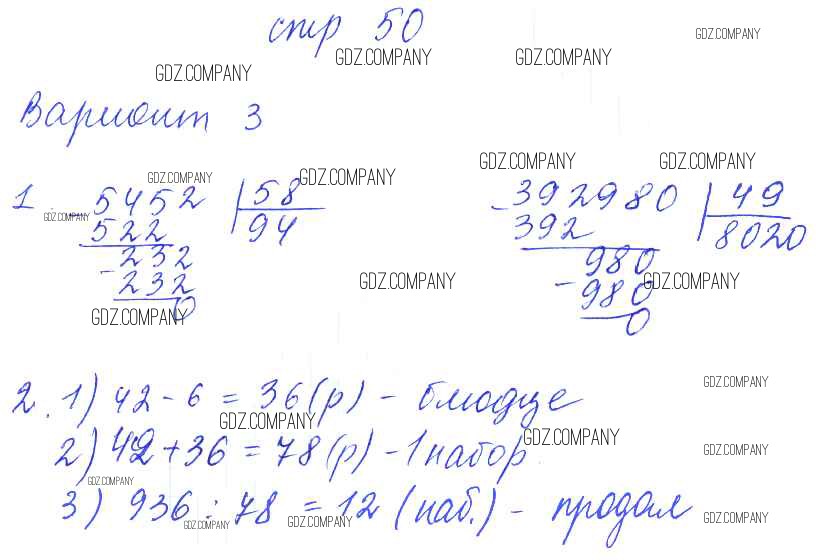 стр 50
GDZ.COMPANY
GDZ.COMPANY GDZ.COMPANY
GDZ.COMPANY
Вариант 3
GDZ.COMPANY GDZ.COMPANY
GDZ.COMPANY GDZ.COMPANY
1. 5452 | 58 - 392980 | 49
GDZ.COMPANY
522 94 392 8020
- 232 980
GDZ.COMPANY GDZ.COMPANY
232 - 980
0 0
GDZ.COMPANY
2. 1) 42 - 6 = 36 (р) - блюдце
GDZ.COMPANY
GDZ.COMPANY
2) 42 + 36 = 78 (р) - 1 набор
GDZ.COMPANY
GDZ.COMPANY
GDZ.COMPANY
3) 936 : 78 = 12 (наб.) - продал
GDZ.COMPANY GDZ.COMPANY GDZ.COMPANY